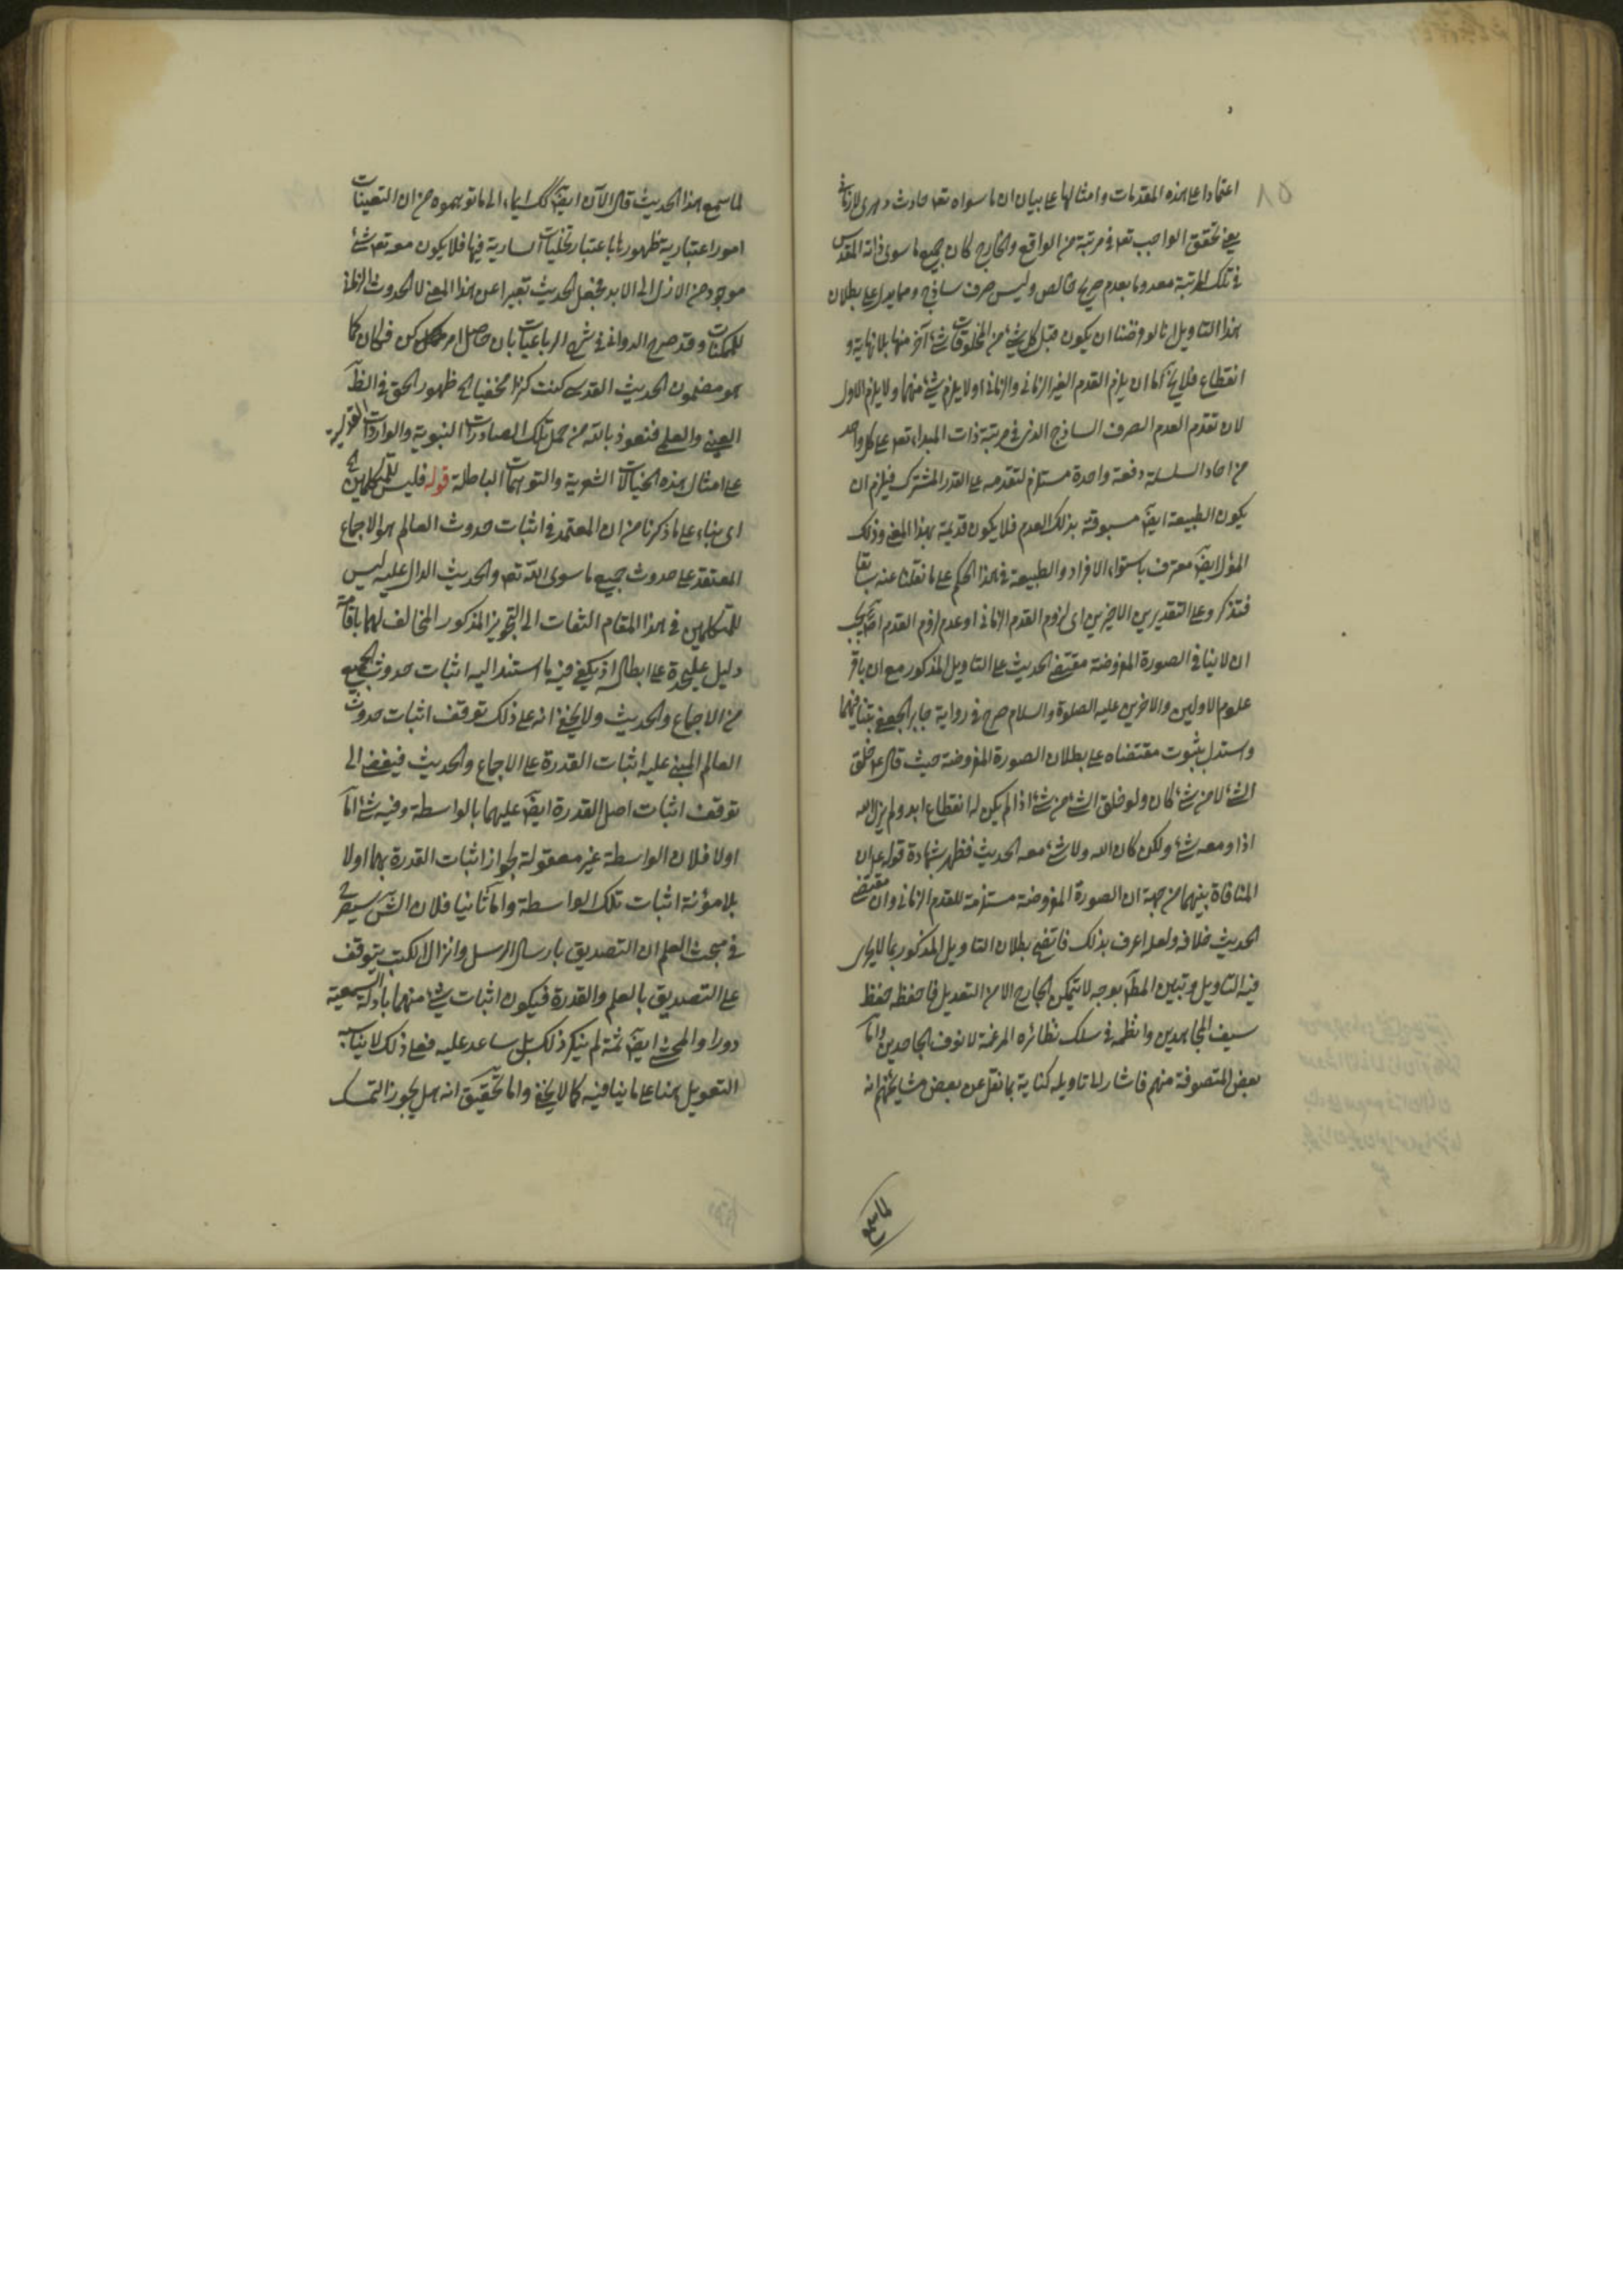 ٨٥
اعتمادا على هذه المقدمات وامثالها على بيان ان ما سواه تعه حادث دهرى لا زمانى
يعنى تحقق الواجب تعه فى مرتبة من الواقع والخارج كان جميع ما سوى ذاته المقدس
فى تلك المرتبة معدوما بعدم صريح خالص وليس صرف ساذج ومما يدل على بطلان
هذا التاويل انا لو فرضنا ان يكون قبل كل شئ من المخلوقات شئ آخر منها بلا نهاية و
انقطاع فلا يخ اما ان يلزم القدم الغير الزمانى والزمانى او لا يلزم شئ منهما ولا يلزم الاول
لان تقدم العدم الصرف الساذج الذى فى مرتبة ذات المبداء تعه على كل واحد
من احاد السلسلة دفعة واحدة مستلزم لتقدمه على القدر المشترك فيلزم ان
يكون الطبيعة ايض مسبوقة بذلك العدم فلا يكون قديمة بهذا المعنى وذلك
المؤل ايض معترف باستواء الافراد والطبيعة فى هذا الحكم على ما نقلنا عنه سابقا
فتذكر وعلى التقديرين الاخيرين اى لزوم القدم الزمانى او عدم لزوم القدم اصلا يجب
ان لا ينافى الصورة المفروضة مقتضى الحديث على التاويل المذكور مع ان باقر
علوم الاولين والاخرين عليه الصلوة والسلام صرح فى رواية جابر الجعفى بتنافيهما
واستدل بثبوت مقتضاه على بطلان الصورة المفروضة حيث قال ع خلق
الشئ لا من شئ كان ولو خلق الشئ من شئ اذا لم يكن له انقطاع ابد ولم يزل الله
اذا ومعه شئ ولكن كان الله ولا شئ معه الحديث فظهر بشهادة قوله ع ان
المنافاة بينهما من جهة ان الصورة المفروضة مستلزمة للقدم الزمانى وان مقتضى
الحديث خلافه ولعله اعرف بذلك فاتضح بطلان التاويل المذكور بما لا
فيه التاويل وتبين المط بوجه لا يتمكن الجارح الا من التعديل فاحفظه حفظ
سيف المجاهدين وانظمه فى سلك نظائره المرغمة لانوف الجاحدين واما
بعض المتصوفة منهم فاشار الى تاويله كناية بما نقل عن بعض مشايخهم انه
لما سمع
لما سمع هذا الحديث قال الآن ايض كك ايماء الى ما توهموه من ان التعينات
امور اعتبارية ظهورها باعتبار تجليات السارية فيها فلا يكون معه تعه شئ
موجود من الازل الى الابد فجعل الحديث تعبيرا عن هذا المعنى لا الحدوث الزمانى
للممكنات وقد صرح الدوانى فى شرح الرباعيات بان حاصل امر كن فكان كما
هو مضمون الحديث القدسى كنت كنزا مخفيا الخ ظهور الحق فى
العينى والعلمى فنعوذ بالله من حمل تلك الصادرات النبوية والواردات القدسية
على امثال هذه الخيالات الشعرية والتوهمات الباطلة قوله فليس للمتكلمين الخ
اى بناء على ما ذكرنا من ان المعتمد فى اثبات حدوث العالم هو الاجماع
المعتقد على حدوث جميع ما سوى الله تعه والحديث الدال عليه ليس
للمتكلمين فى هذا المقام التفات الى التجويز المذكور المخالف لهما باقامة
دليل عليحدة على ابطاله اذ يكفى فيه ما استند اليه اثبات حدوث الجميع
من الاجماع والحديث ولا يخفى انه على ذلك توقف اثبات حدوث
العالم المبنى عليه اثبات القدرة على الاجماع والحديث فيفضى الى
توقف اثبات اصل القدرة ايض عليهما بالواسطة وفيه شئ اما
اولا فلان الواسطة غير معقولة لجواز اثبات القدرة بهما اولا
بلا مؤنة اثبات تلك الواسطة واما ثانيا فلان الش سيصرح
فى مبحث العلم ان التصديق بارسال الرسل وانزال الكتب يتوقف
على التصديق بالعلم والقدرة فيكون اثبات شئ منهما بادلة السمعية
دورا والمحشى ايض ثمة لم ينكر ذلك بل ساعد عليه فعلى ذلك لا يناسبه
التعويل هنا على ما ينافيه كما لا يخفى واما تحقيق انه هل يجوز التمسك